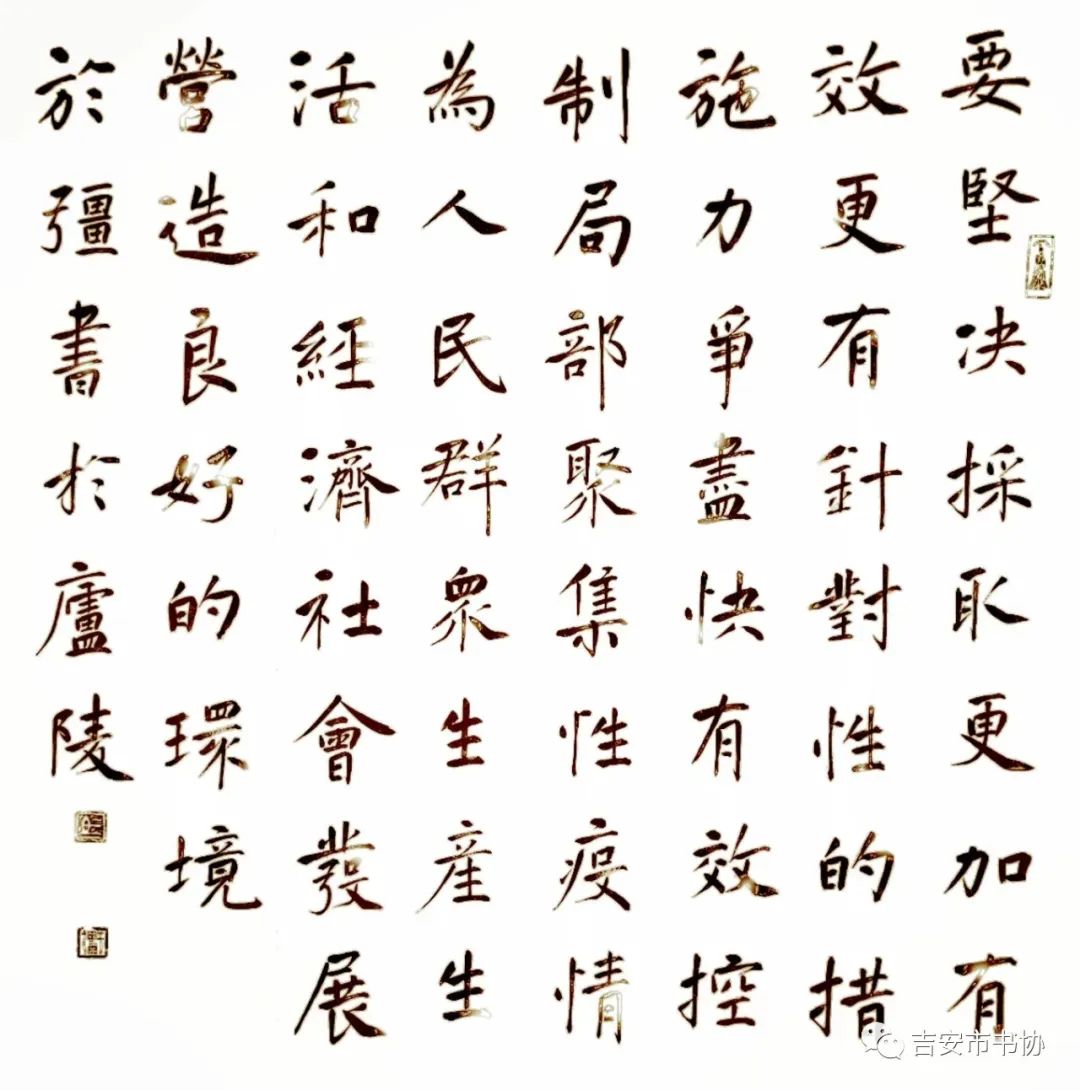 要堅决採取更加有
效更有針對性的措
施力爭盡快有效控
制局部聚集性疫情
為人民群眾生産生
活和經濟社會發展
營造良好的環境
於彊書於廬陵
吉安市书协